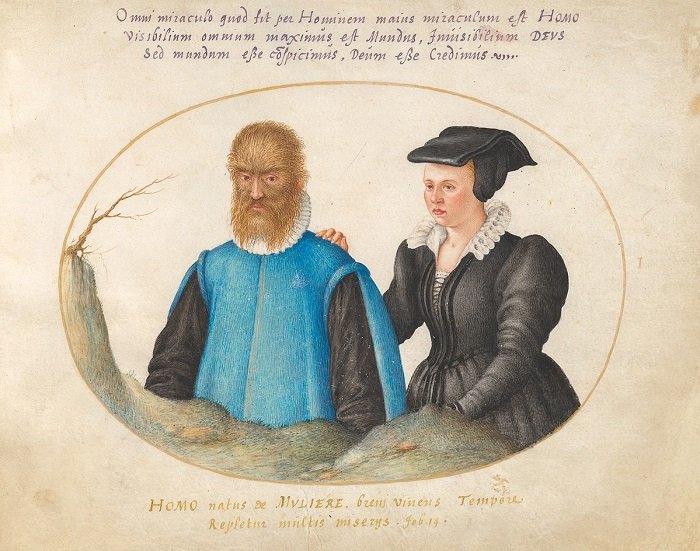 Omni miraculo quod fit per Hominem maius miraculum est HOMO
Visibilium omnium maximus est Mundus, Inuisibilium DEVS
Sed mundum eße cõspicimus, Deum eße Credimus
I
HOMO natus de MVLIERE, breui viuens Tempore
Repletur multis miserijs. Job. 14.